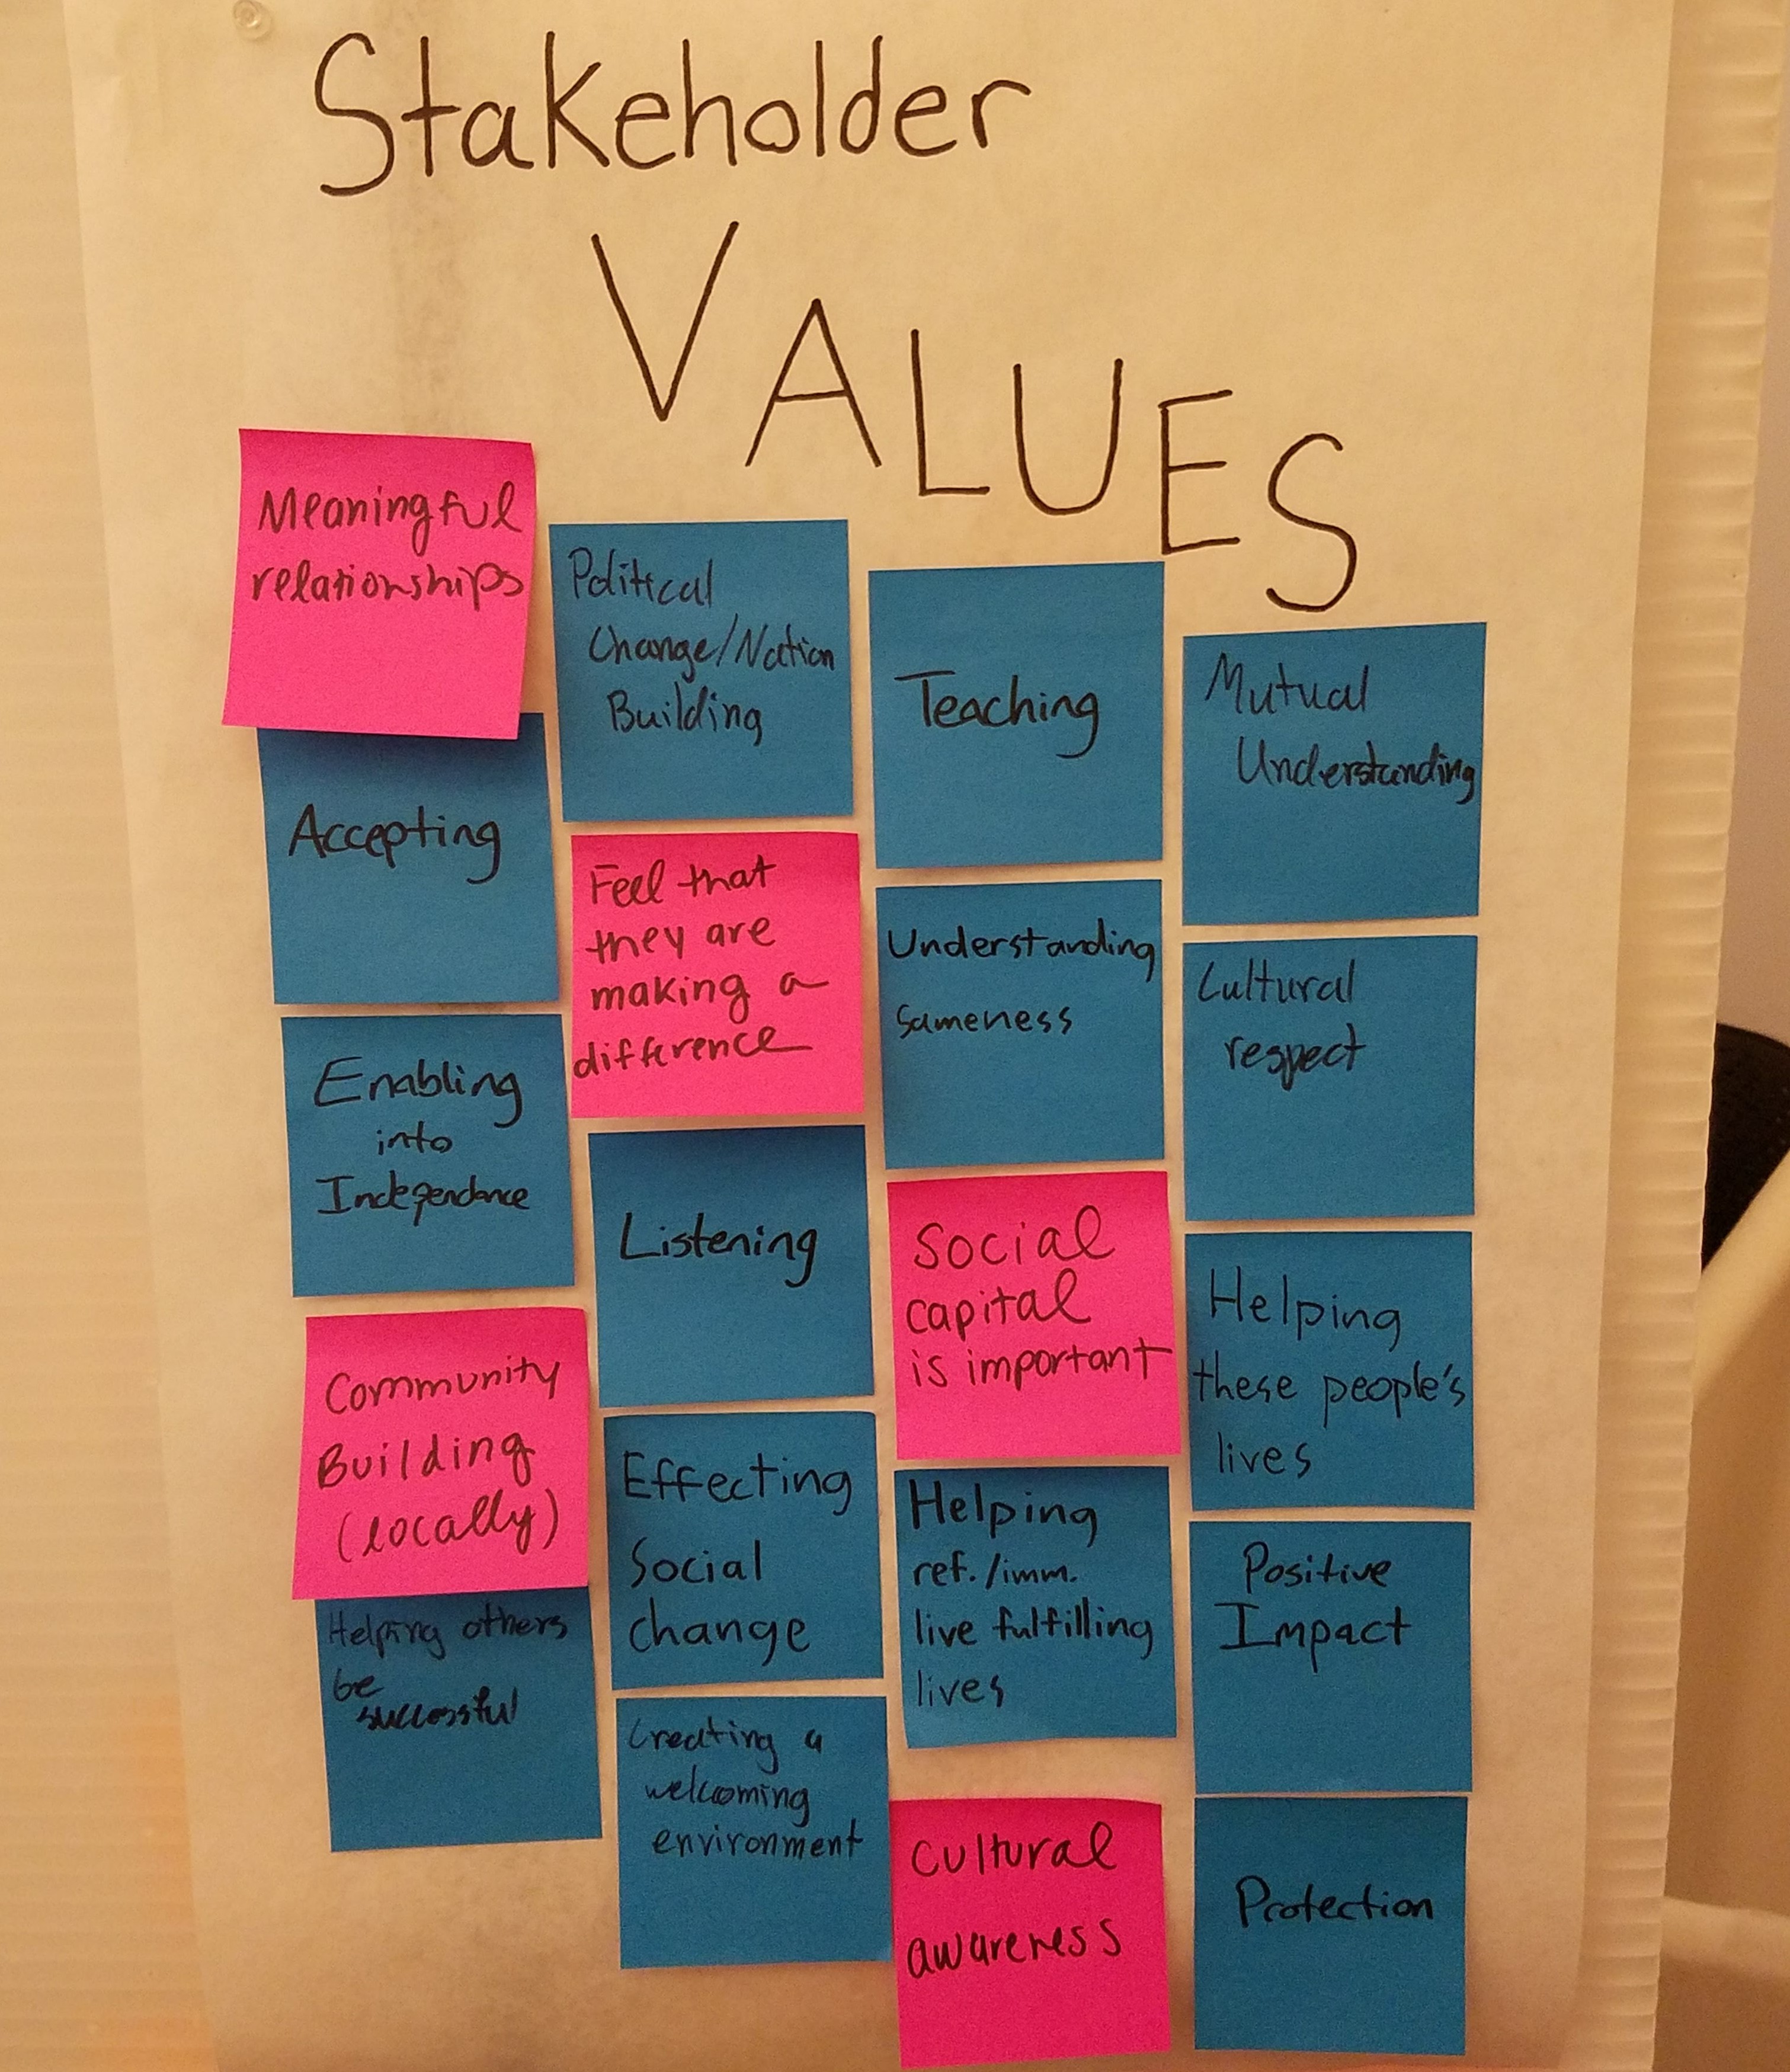 Stakeholder
VALUES
Meaningful
relationships
Accepting
Enabling
into
Independance
Community
Building
(locally)
Helping others
be
successful
Political
Change/Nation
Building
Feel that
they are
making a
difference
Listening
Effecting
Social
change
Creating a
welcoming
environment
Teaching
Understanding
Sameness
Social
capital
is important
Helping
ref./imm.
live fulfilling
lives
Cultural
awareness
Mutual
Understanding
Cultural
respect
Helping
these people's
lives
Positive
Impact
Protection